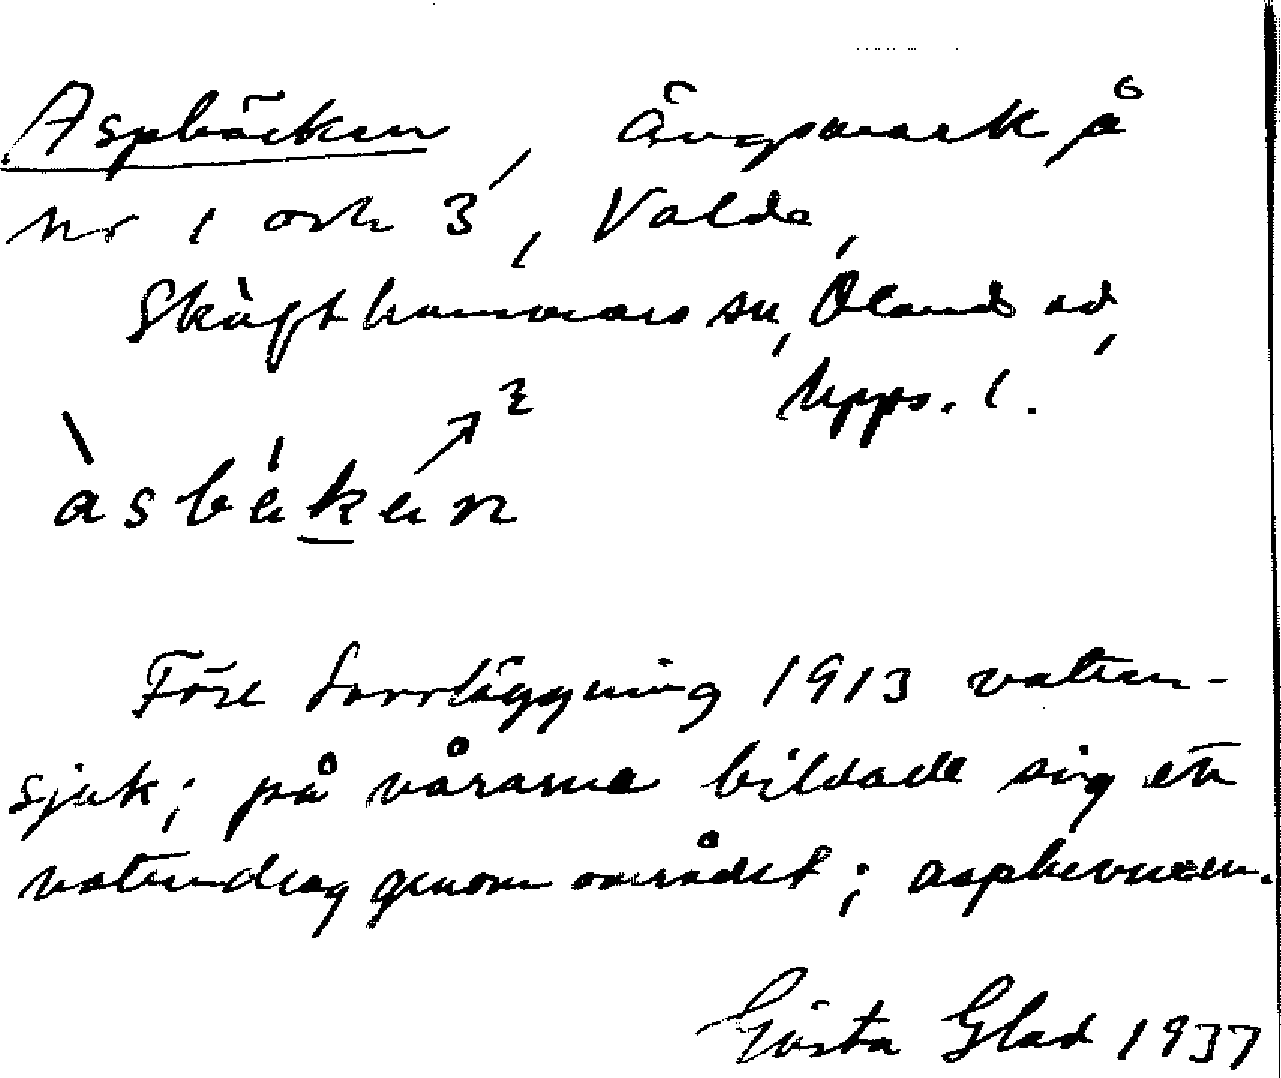 Aspbäcken, Ängsmark på
nr 1 och 3, Valda,
Skäfthammars sn, Oland hd,
Upps. l.
àsbékan 2
Före torrläggning 1913 vatten-
sjuk; på vårarna bildade sig ett
vattendrag genom området; aspbevuxen.
Gösta Glad 1937